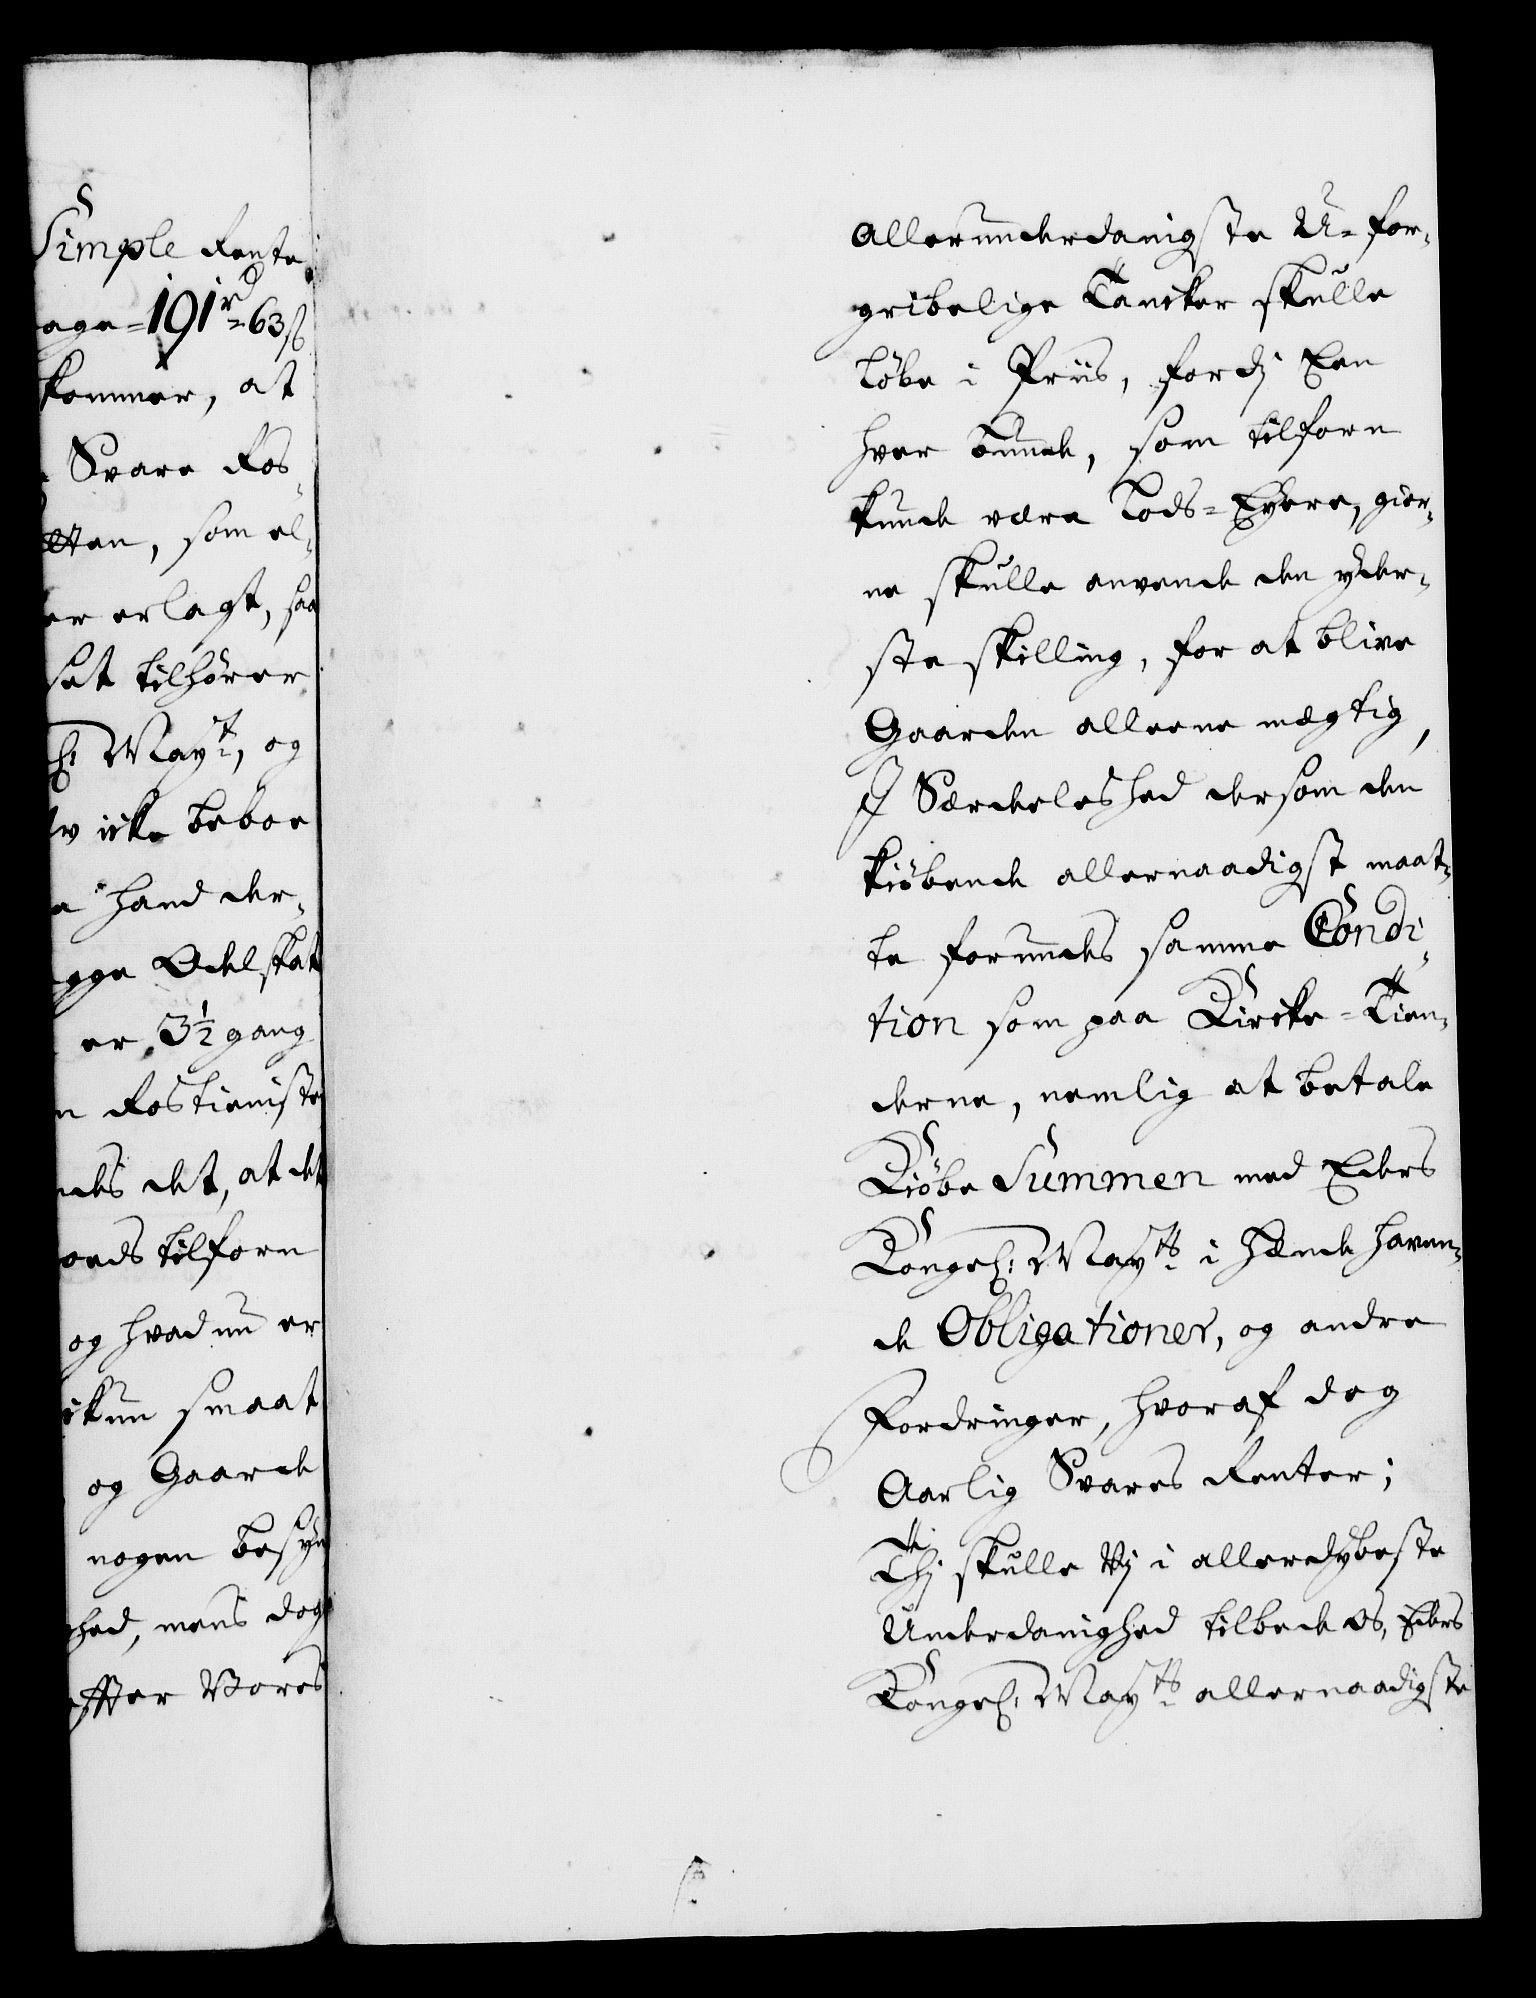 Simple Rente
age = 191 rd = 63 ß
kommer, at
Svare Ros-
tten, som el-
er erlagt, saa
set tilhører
h: Mayt, og
icke beboe
hand der-
gge Odelskat
er 3½ gang
n Rostieniste
ndes det, at det
oeds tilforn
og hvad nu er
ickun smaat
og Gaarde
nogen besyn
hed, mens dog
effter Vores
Allerunderdanigste U-for-
gribelige Tancker skulle
løbe i Priis, fordj Een
hver Bunde, som tilforn
kunde være Lods-Eyere, gier-
ne skulle anvende den yder-
ste skilling, for at blive
Gaarden alleene mægtig,
J Særdeleshed dersom den
kiøbende allernaadigst maat-
te forundes samme Condi-
tion som paa Kircke-Tien-
derne, nemlig at betale
Kiøbe Summen med Eders
Kongel: Mayts i hænde haven-
de Obligationer, og andre
Fordringer, hvoraf dog
Aarlig Svares Renter;
Thj skulle Vj i allerdybeste
Underdanighed tilbede os, Eders
Kongel: Mayts allernaadigste